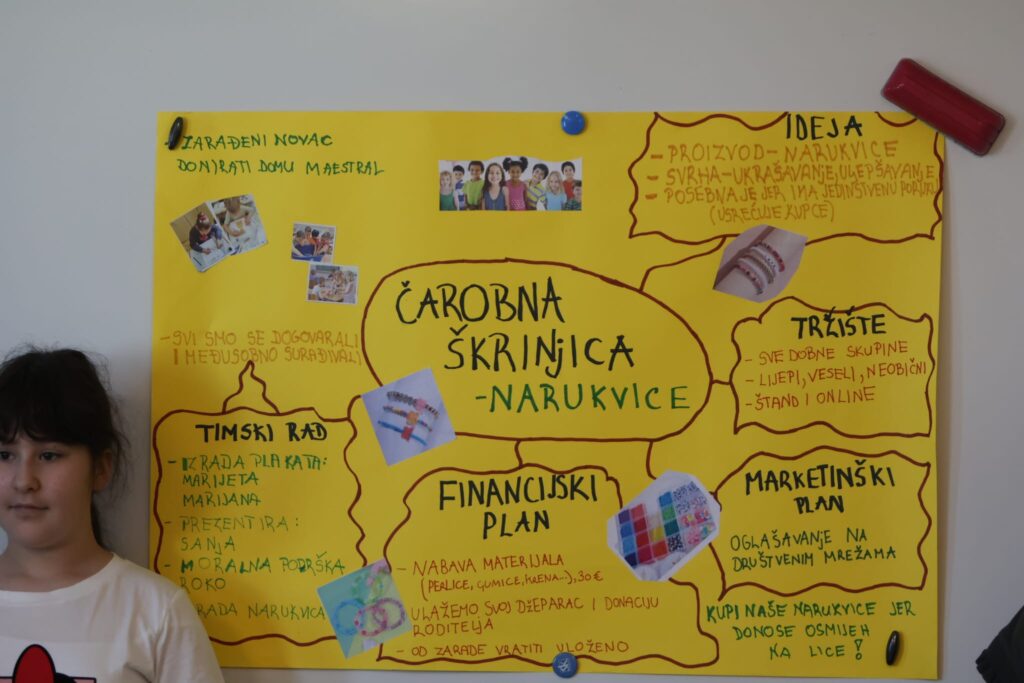 ZARAĐENI NOVAC
DONIRATI DOMU MAESTRAL
IDEJA
- PROIZVOD - NARUKVICE
- SVRHA - UKRAŠAVANJE, ULJEPŠAVANJE
- POSEBNA JE JER IMA JEDINSTVENU PORUKU
(USREĆUJE KUPCE)
ČAROBNA
ŠKRINJICA
- NARUKVICE
TRŽIŠTE
- SVE DOBNE SKUPINE
- LIJEPI, VESELI, NEOBIČNI
- ŠTAND I ONLINE
- SVI SMO SE DOGOVARALI
I MEĐUSOBNO SURAĐIVALI
TIMSKI RAD
- IZRADA PLAKATA:
MARIJETA
MARIJANA
- PREZENTIRA:
SANJA
- MORALNA PODRŠKA
ROKO
RADA NARUKVICA
FINANCIJSKI
PLAN
- NABAVA MATERIJALA
(PERLICE, GUMICE, 30 €
ULAŽEMO SVOJ DŽEPARAC I DONACIJU
RODITELJA
- OD ZARADE VRATITI ULOŽENO
MARKETINŠKI
PLAN
OGLAŠAVANJE NA
DRUŠTVENIM MREŽAMA
KUPI NAŠE NARUKVICE JER
DONOSE OSMIJEH
NA LICE!